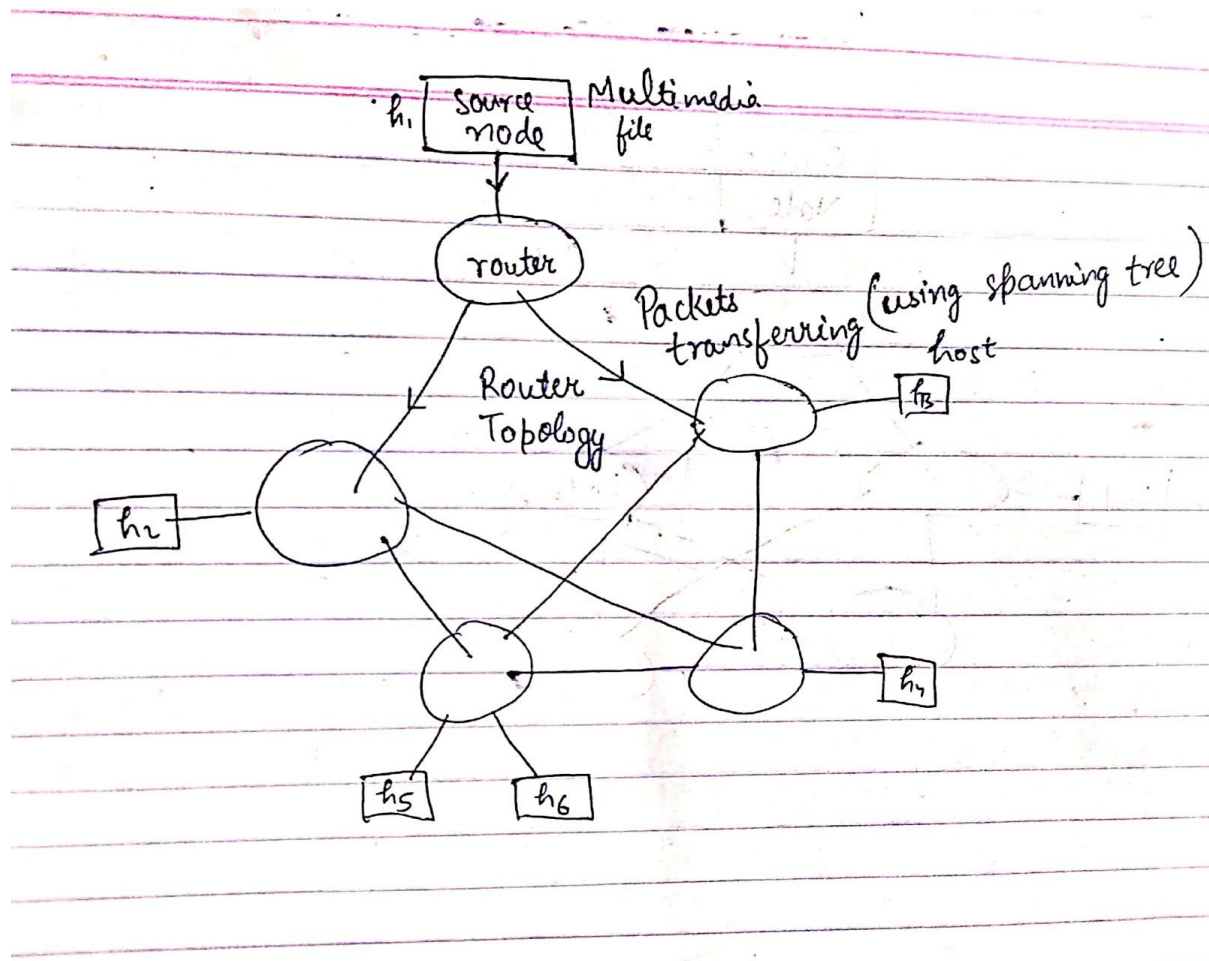 h1
source
node
Multimedia
file
router
Packets
transferring (using spanning tree)
host
Router
Topology
h3
h2
h4
h5
h6